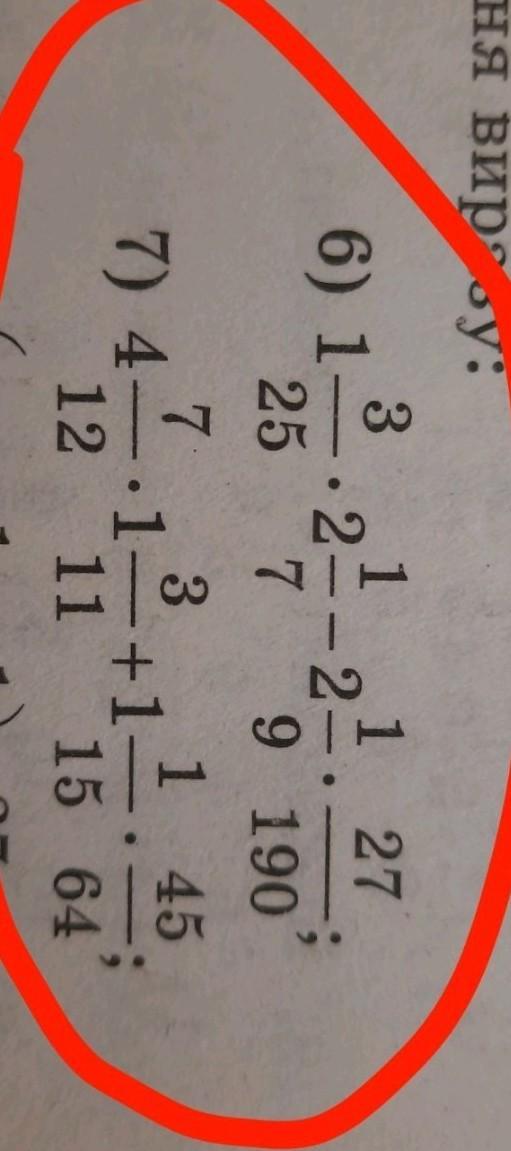 ня виразу:
6) 1 3/25 · 2 1/7 − 2 1/9 · 27/190;
7) 4 7/12 · 1 3/11 + 1 1/15 · 45/64;